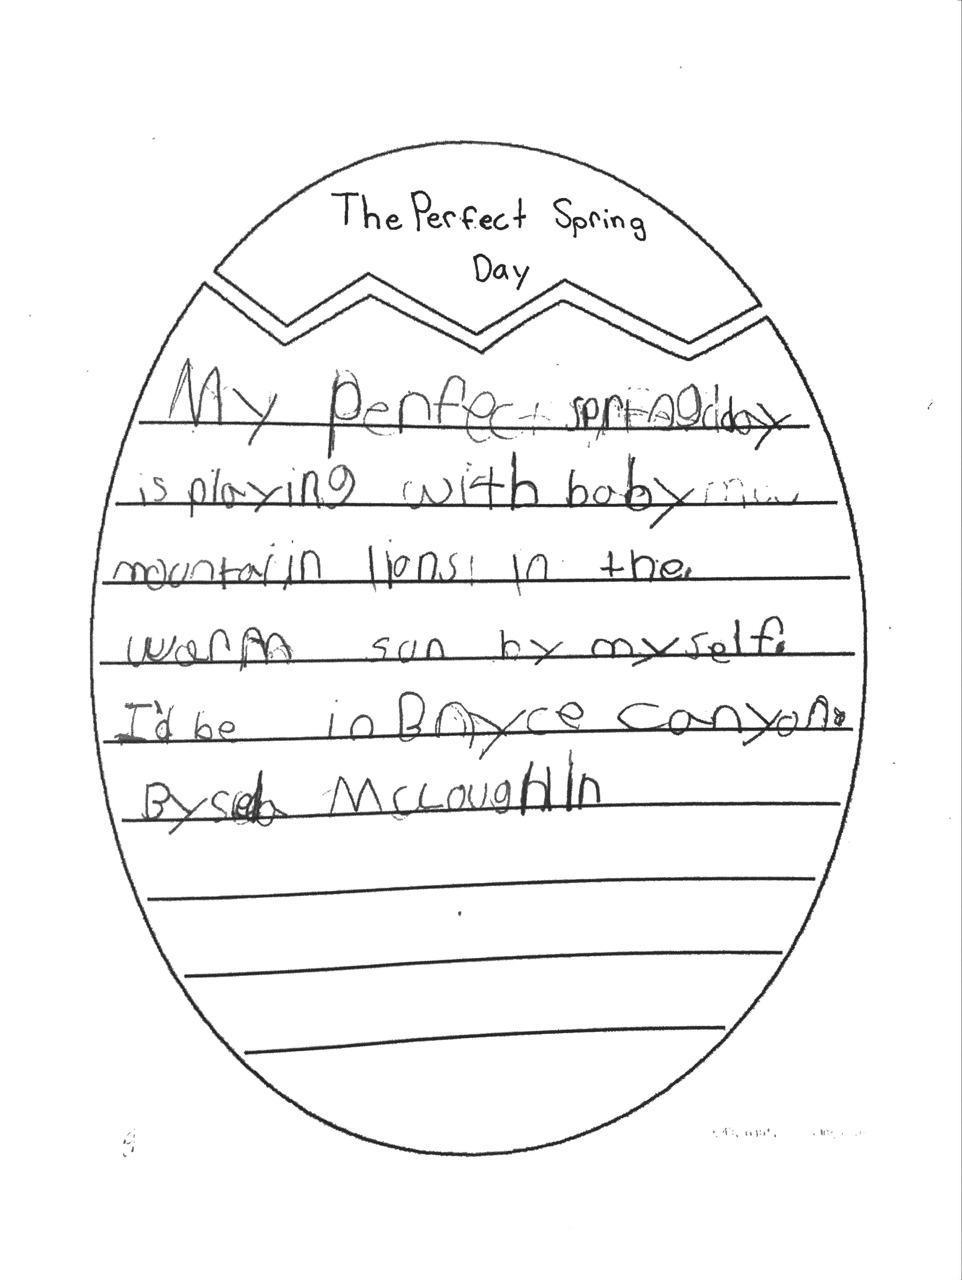 The Perfect Spring
Day
My perfect spring day
is playing with baby
mountain lions in the
warm sun by myself.
I'd be in Bryce Canyon.
By Seb McLoughlin